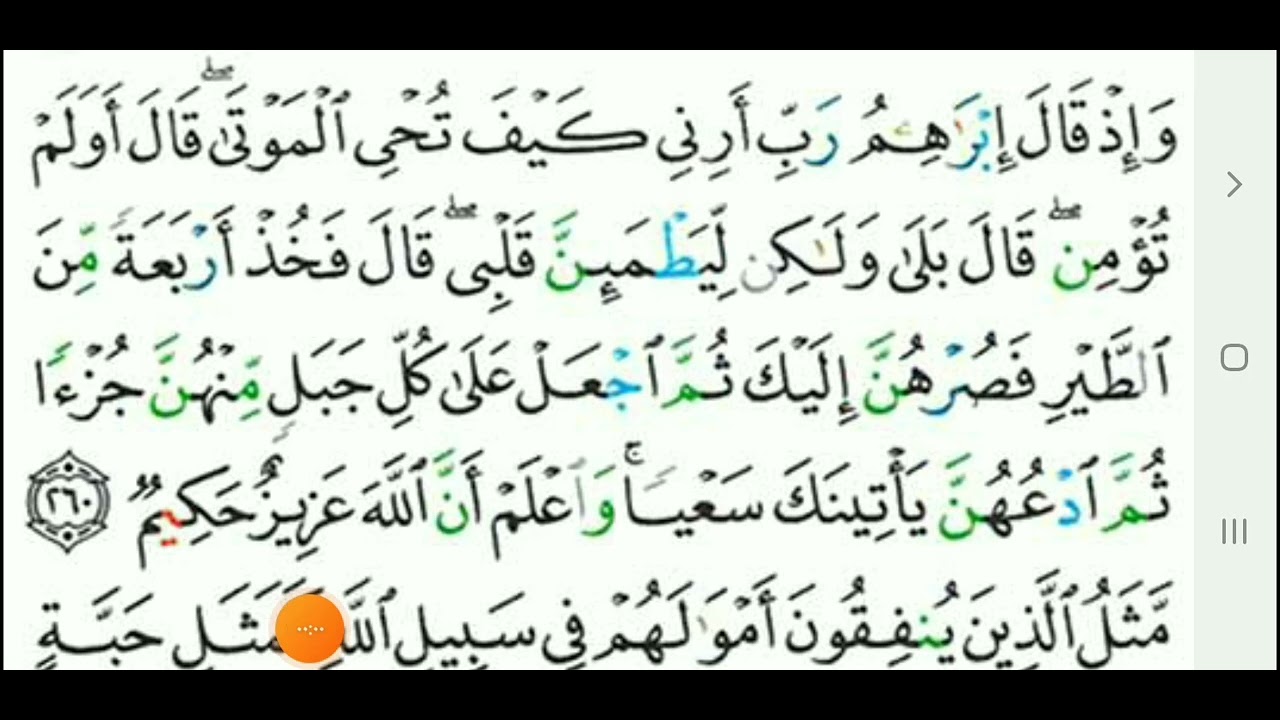 وَإِذْ قَالَ إِبْرَٰهِـۧمُ رَبِّ أَرِنِي كَيْفَ تُحْىِ ٱلْمَوْتَىٰ ۖ قَالَ أَوَلَمْ
تُؤْمِن ۖ قَالَ بَلَىٰ وَلَـٰكِن لِّيَطْمَئِنَّ قَلْبِى ۖ قَالَ فَخُذْ أَرْبَعَةً مِّنَ
ٱلطَّيْرِ فَصُرْهُنَّ إِلَيْكَ ثُمَّ ٱجْعَلْ عَلَىٰ كُلِّ جَبَلٍ مِّنْهُنَّ جُزْءًا
ثُمَّ ٱدْعُهُنَّ يَأْتِينَكَ سَعْيًا ۚ وَٱعْلَمْ أَنَّ ٱللَّهَ عَزِيزٌ حَكِيمٌ ٢٦٠
مَّثَلُ ٱلَّذِينَ يُنفِقُونَ أَمْوَٰلَهُمْ فِى سَبِيلِ ٱللَّهِ حَبَّةٍ